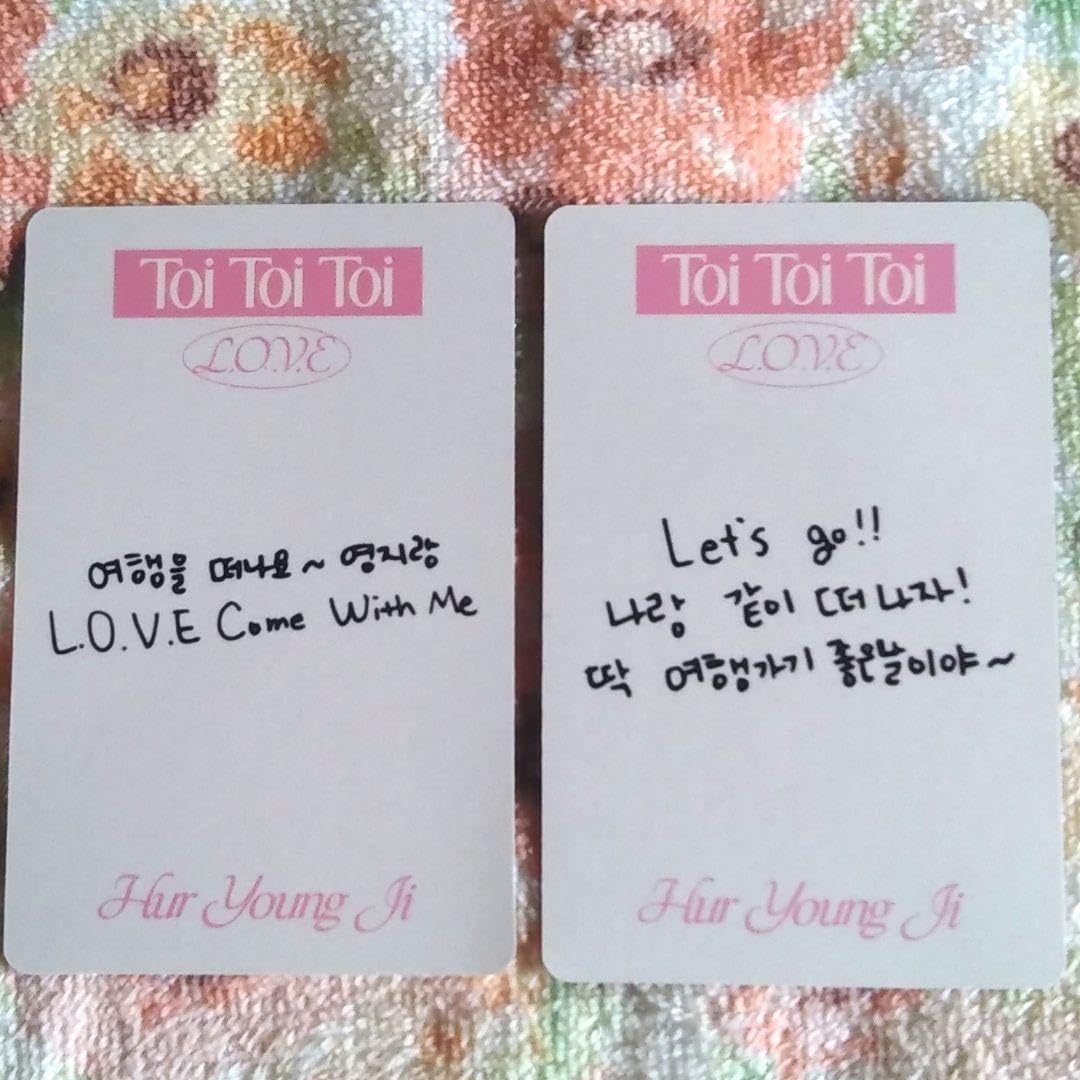 Toi Toi Toi
L.O.V.E
여행을 떠나요~ 영지랑
L.O.V.E Come With Me
Hur Young Ji
Toi Toi Toi
L.O.V.E
Let's go!!
나랑 같이 떠나자!
딱 여행가기 좋은날이야~
Hur Young Ji